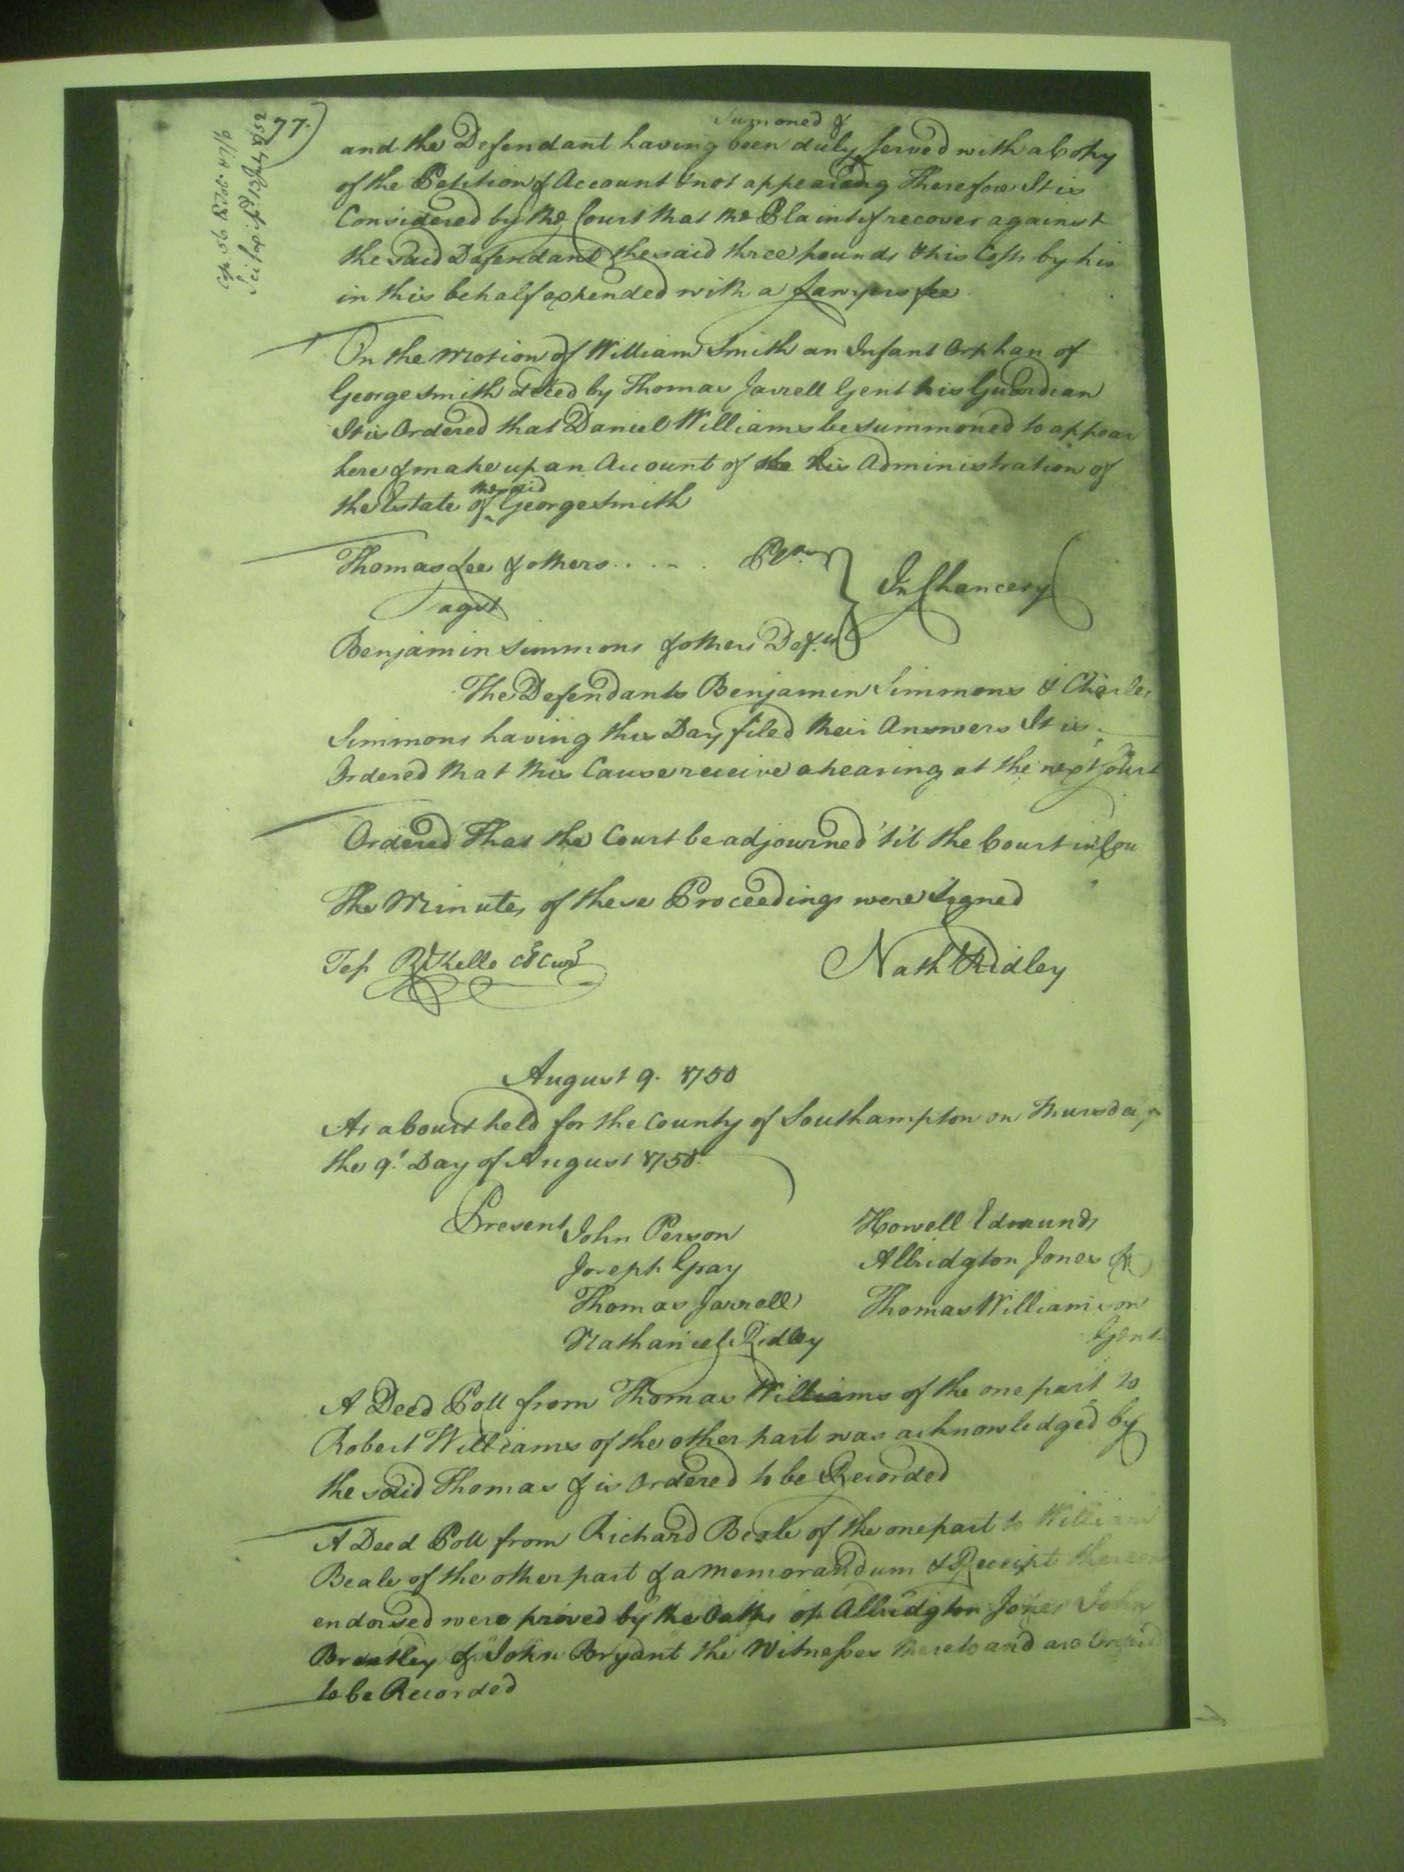 77.)
Sumoned &
and the Defendant having been duly served with a Copy
of the Petition & Account & not appearing Therefore It is
Considered by the Court that the Plaintif recover against
the said Defendant the said three pounds & his Costs by him
in this behalf expended with a Lawyers fee
On the Motion of William Smith an Infant Orphan of
George Smith deced by Thomas Jarrell Gent his Guardian
It is Ordered that Daniel Williams be summoned to appear
here & make up an Account of the his Administration of
the said
the Estate of George Smith
Thomas Lee & others . . . . . Pltfs
agst
In Chancery
Benjamin Simmons & others Defts
The Defendants Benjamin Simmons & Charles
Simmons having this Day filed their Answers It is
Ordered that this Cause receive a hearing at the next Court
Ordered That the Court be adjourned 'til the Court in Cou
The Minutes of these Proceedings were Signed
Tes R Kello Cl Cur
Nath Ridley
August 9. 1750
At a Court held for the County of Southampton on Thursday
the 9. Day of August 1750.
Present John Person Howell Edmunds
Joseph Gray Albridgton Jones &
Thomas Jarrell Thomas Williamson
Nathaniel Ridley Gent
A Deed Poll from Thomas Williams of the one part to
Robert Williams of the other part was acknowledged by
the said Thomas & is Ordered to be Recorded
A Deed Poll from Richard Beale of the one part to William
Beale of the other part & a Memorandum & Receipt thereon
endorsed were proved by the Oaths of Albridgton Jones John
Brantley & John Bryant the Witnesses thereto and are Ordered
to be Recorded